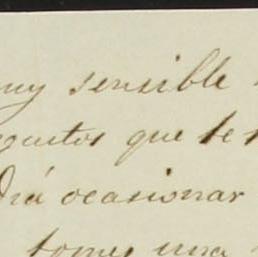 muy sensible
gustos que te
drá ocasionar
tomes una